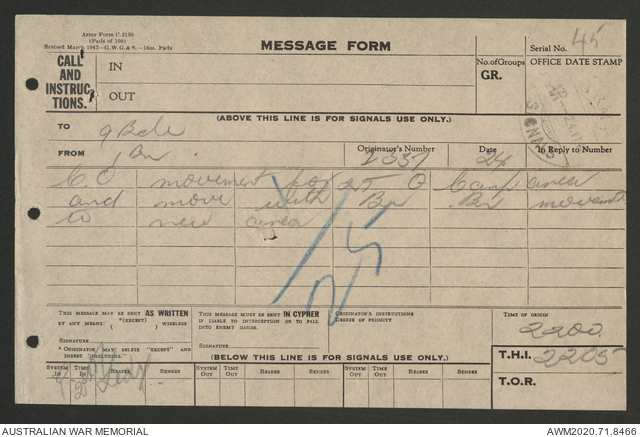 Army Form C.2130
(Pads of 100)
Revised March 1942—G.W.G.&S.—16m. Pads
MESSAGE FORM
Serial No. 45
CALL
AND
INSTRUC-
TIONS.
IN
OUT
No. of Groups
GR.
OFFICE DATE STAMP
SIGNALS
(ABOVE THIS LINE IS FOR SIGNALS USE ONLY.)
TO 9 Bde
FROM Bn
Originator's Number
2337
Date
24
In Reply to Number
CO movement for 25 O Camp area
and move with Bn Bn movement
to new area
25
THIS MESSAGE MAY BE SENT AS WRITTEN
BY ANY MEANS. *(EXCEPT) ( ) WIRELESS
SIGNATURE
* ORIGINATOR MAY DELETE "EXCEPT" AND
INSERT "INCLUDING."
THIS MESSAGE MUST BE SENT IN CYPHER
IF LIABLE TO INTERCEPTION OR TO FALL
INTO ENEMY HANDS.
SIGNATURE
ORIGINATOR'S INSTRUCTIONS
DEGREE OF PRIORITY
TIME OF ORIGIN
2200
(BELOW THIS LINE IS FOR SIGNALS USE ONLY.)
T.H.I. 2205
T.O.R.
SYSTEM IN
TIME IN
READER
SENDER
SYSTEM OUT
TIME OUT
READER
SENDER
SYSTEM OUT
TIME OUT
READER
SENDER
AUSTRALIAN WAR MEMORIAL
AWM2020.71.8466